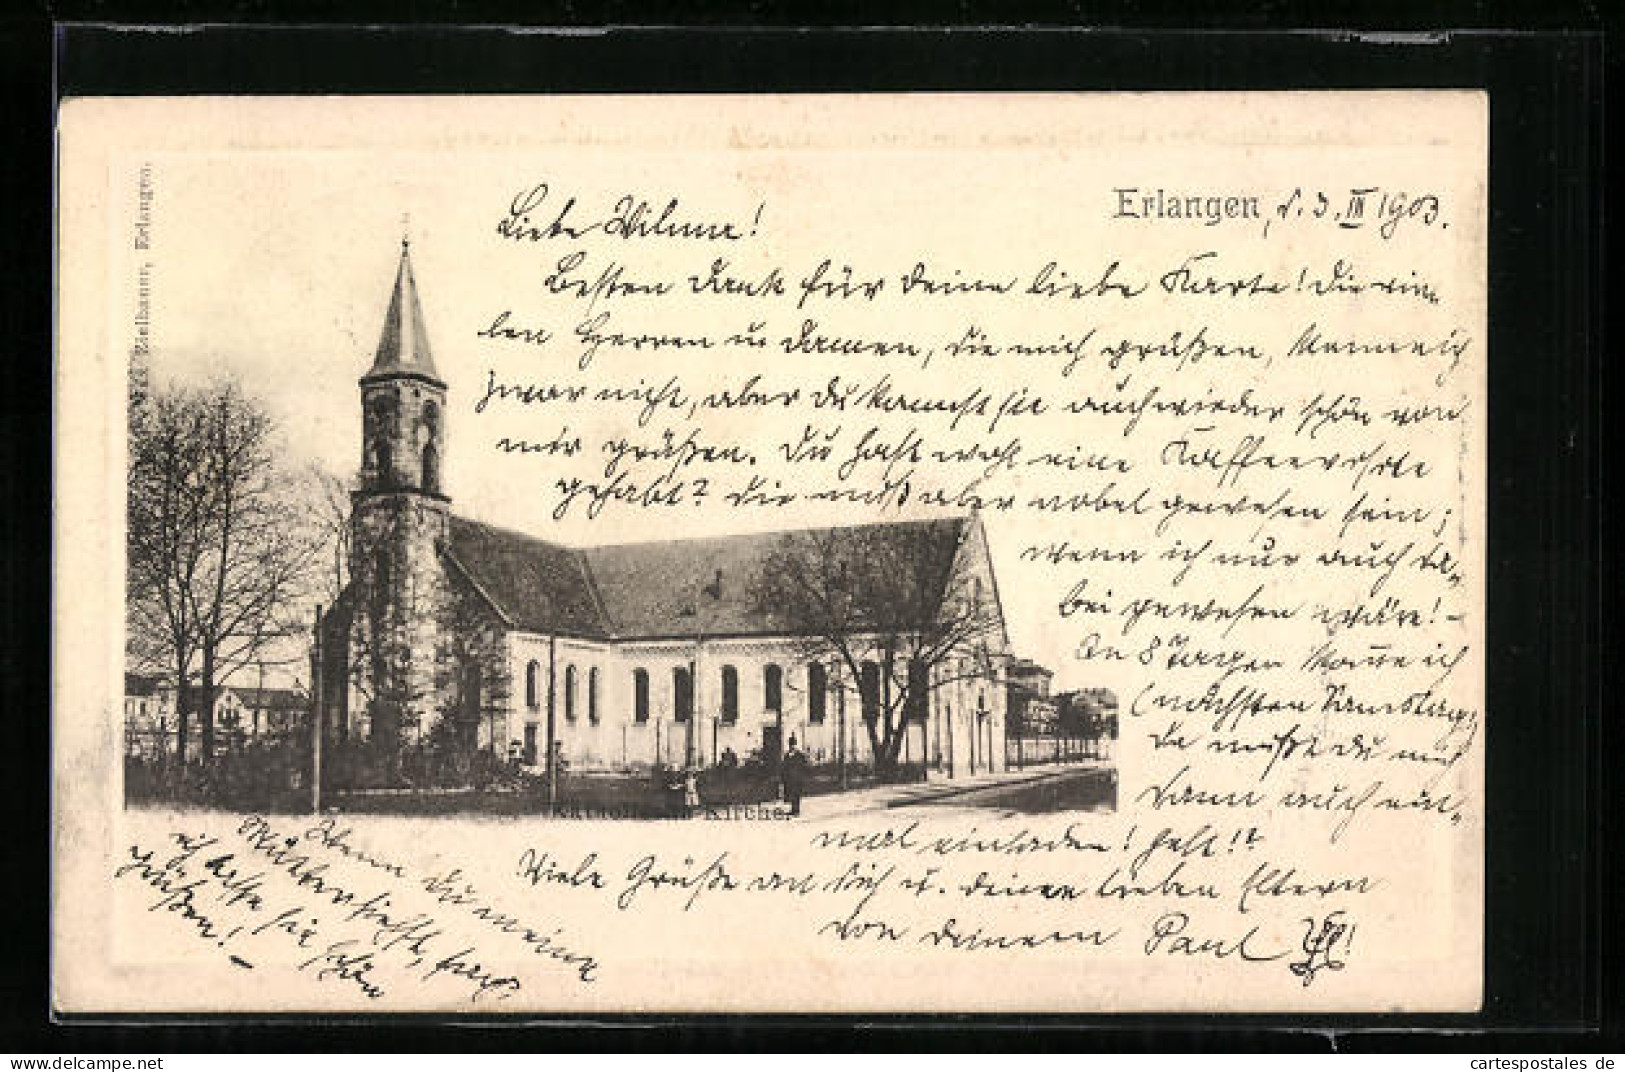 Erlangen, d. 3. III 1903.
Liebe Wilma!
Besten Dank für deine liebe Karte! Die vie-
len Herren u Damen, die mich grüßen, kenne ich
zwar nicht, aber du kannst sie auch wieder schön von
mir grüßen. Du hast wohl eine Kaffeevisite
gehabt? Die muß aber nobel gewesen sein;
wenn ich nur auch da-
bei gewesen wäre! -
In 8 Tagen komme ich
(nächsten Samstag)
da mußt du mich
dann auch ein-
mal einladen! Gelt!?
Viele Grüße an dich u. deine lieben Eltern
von deinem Paul
Wenn du meine
Mutter siehst,
ich lasse sie schön
grüßen! -
Katholische Kirche.
Erlangen.
cartespostales de